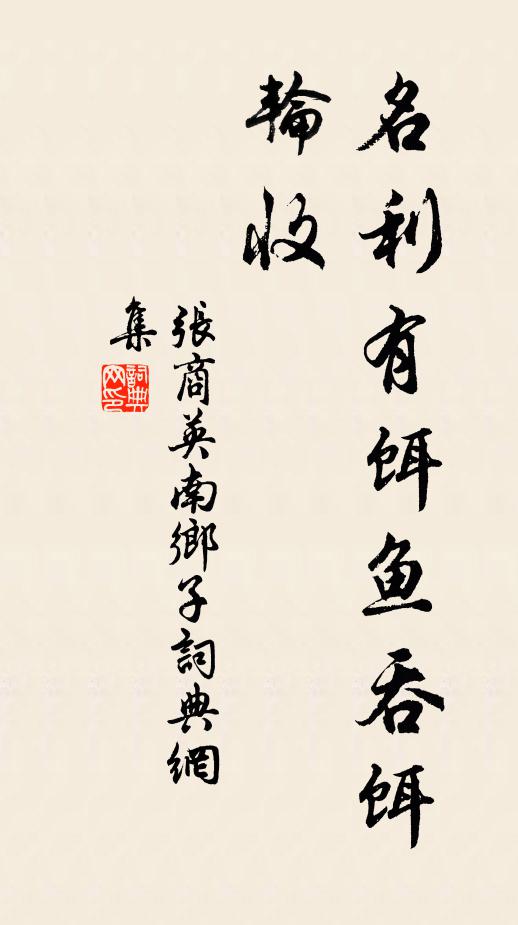 名利有饵鱼吞饵
輪收
張商英南鄉子詞典網
集
詞典
网印